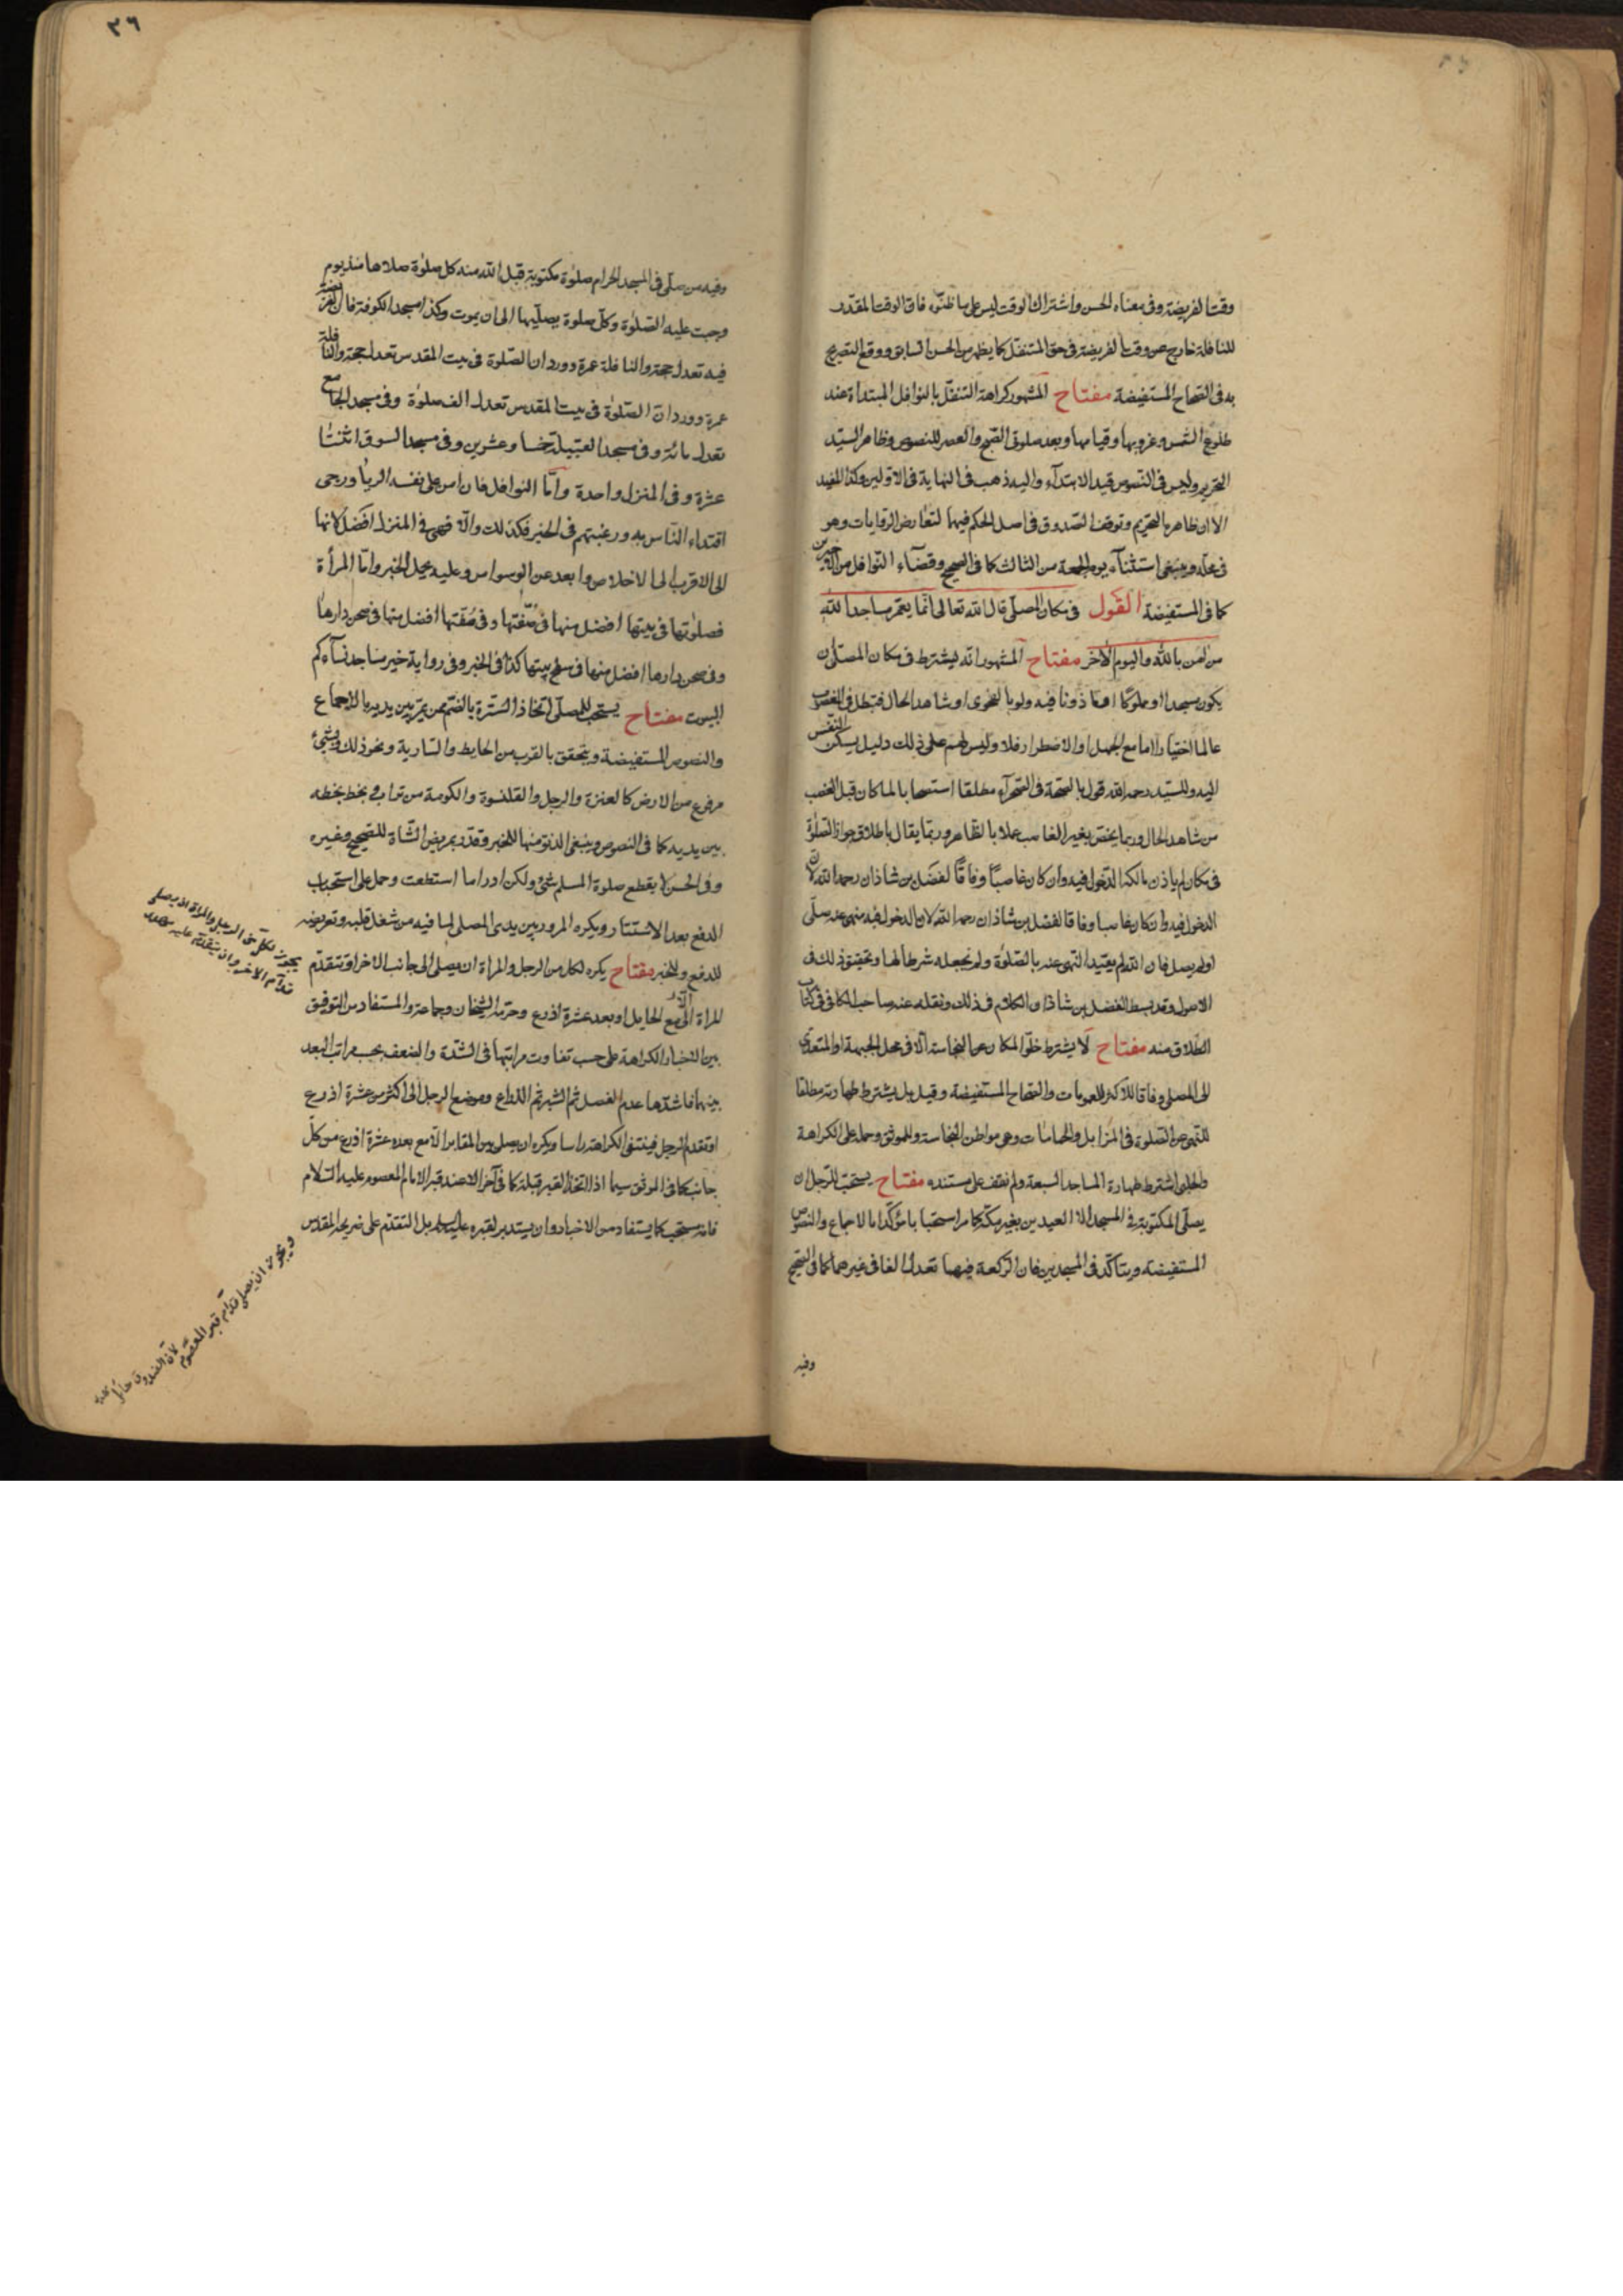 وقت الفريضة وفي معناه الحسن واشتراك الوقت ليس على ما ظنّوه فان الوقت المقدّر
للنافلة خارج عن وقت الفريضة في حق المتنفّل كما يظهر من الحسن السابق ووقع التصريح
به في الصّحاح المستفيضة مفتاح المشهور كراهة التنفّل بالنوافل المبتداة عند
طلوع الشمس وغروبها وقيامها وبعد صلوتي الصّبح والعصر للنصوص وظاهر السيّد
التحريم وليس في النّصوص قيد الابتدآء واليه ذهب في النهاية في الاوّلين وكذا المفيد
الا ان ظاهره التحريم وتوقف الصّدوق في اصل الحكم فيهما لتعارض الروايات وهو
في محلّه وينبغى استثنآء يوم الجمعة من الثالث كما في الصحيح وقضآء النّوافل من الاخيرين
كما في المستفيضة القول في مكان المصلّى قال الله تعالى انّما يعمر مساجد الله
من امن بالله واليوم الآخر مفتاح المشهور انّه يشترط في مكان المصلّى ان
يكون مسجدا او مملوكًا او ماذونا فيه ولو بالفحوى او شاهد الحال فتبطل في الغصب
عالما اختيارا اما مع الجهل او الاضطرار فلا وليس لهم على ذلك دليل يسكن النّفس
اليه وللسيّد رحمه الله قول بالصّحة في الصّحرآء مطلقا استصحابا لما كان قبل الغصب
من شاهد الحال وربما يخصّ بغير الغاصب عملا بالظاهر وربّما يقال باطلاق جواز الصّلوة
في مكان لم ياذن مالكه الدّخول فيه وان كان غاصبًا وفاقًا لفضل بن شاذان رحمه الله لان
الدخول فيه وان كان غاصبا وفاقا لفضل بن شاذان رحمه الله لان الدخول فيه منهى عنه صلّى
او لم يصل فان الله لم يقيّد النّهى عنه بالصّلوة ولم نجعله شرطا لها وتحقيق ذلك في
الاصول وقد بسط الفضل بن شاذان الكلام في ذلك ونقله عنه صاحب الكافي في كتاب
الطّلاق منه مفتاح لا يشترط خلوّ المكان عن النجاسة الّا في محل الجبهة او المتعدّى
الى المصلى وفاقا للاكثر للعمومات والصحاح المستفيضة وقيل بل يشترط طهارته مطلقا
للنّهى عن الصّلوة في المزابل والحمامات وهى مواطن النجاسة وللموثق وحمله على الكراهة
والحلبى اشترط طهارة المساجد السبعة ولم نقف على مستنده مفتاح يستحبّ للرّجل ان
يصلّى المكتوبة في المسجد الا العيدين بغير مكّة كما مر استحبابا مؤكّدا بالاجماع والنصوص
المستفيضة ويتأكّد في المسجدين فان الرّكعة فيهما تعدل الفا في غيرهما كما في الصّحيح
وفيه
٣٦
وفيه من صلّى في المسجد الحرام صلوة مكتوبة قبل الله منه كل صلوة صلاها منذ يوم
وجبت عليه الصّلوة وكلّ صلوة يصلّيها الى ان يموت وكذا مسجد الكوفة فان الفريضة
فيه تعدل حجة والنافلة عمرة وورد ان الصّلوة في بيت المقدس تعدل حجة والنافلة
عمرة وورد ان الصّلوة في بيت المقدس تعدل الف صلوة وفي مسجد الجامع
تعدل مائة وفي مسجد القبيلة خمسا وعشرين وفي مسجد السوق اثنتا
عشرة وفي المنزل واحدة وامّا النوافل فان امن على نفسه الريا ورجى
اقتداء النّاس به ورغبتهم في الخير فكذلك والّا فهى في المنزل افضل لانها
الى الاقرب الى الاخلاص وابعد عن الوسواس وعليه يحمل الخبر وامّا المرأة
فصلوتها في بيتها افضل منها في صفّتها وفي صفّتها افضل منها في صحن دارها
وفي صحن دارها افضل منها في سطح بيتها كذا في الخبر وفي رواية خير مساجد نسآءكم
البيوت مفتاح يستحبّ للمصلّى اتّخاذ السّترة بالضّم ممن يمرّ بين يديه بالاجماع
والنصوص المستفيضة ويتحقق بالقرب من الحايط والسّارية ونحو ذلك وبشئ
مرفوع من الارض كالعنزة والرحل والقلنسوة والكومة من تراب وبخط يخطه
بين يديه كما في النصوص وينبغى الدنوّ منها للخبر وقدّر بمربض الشّاة للصّحيح وغيره
وفي الحسن لا يقطع صلوة المسلم شئ ولكن ادرا ما استطعت وحمل على استحباب
الدفع بعد الاستتار ويكره المرور بين يدى المصلى لما فيه من شغل قلبه وتعريضه
للدفع وللخبر مفتاح يكره لكل من الرجل والمراة ان يصلى الى جانب الاخر او تتقدّم
المراة الّا مع الحايل او بعد عشرة اذرع وحرّمه الشيخان وجماعة والمستفاد من التوفيق
بين الاخبار الكراهة على حسب تفاوت مراتبها في الشّدّة والضعف بحسب مراتب البعد
بينهما فاشدّها عدم الفصل ثم الشبر ثم الذراع وموضع الرحل الى اكثر من عشرة اذرع
او تقدم الرجل فينتفى الكراهة راسا ويكره ان يصلى بين المقابر الّا مع بعد عشرة اذرع من كلّ
جانب كما في الموثق سيما اذا اتّخذ القبر قبلة كما في آخر الا عند قبر الامام المعصوم عليه السّلام
فانه مستحب كما يستفاد من الاخبار وان يستدبر لقبره عليه السلم بل التقدّم على ضريحه المقدس
يجوز لكلّ من الرجل والمراة ان يصلى
قدّام الاخر وان يتقدّم عليه
ويجوز ان يصلى قدّام قبر المعصوم
لانّ الصندوق حايل